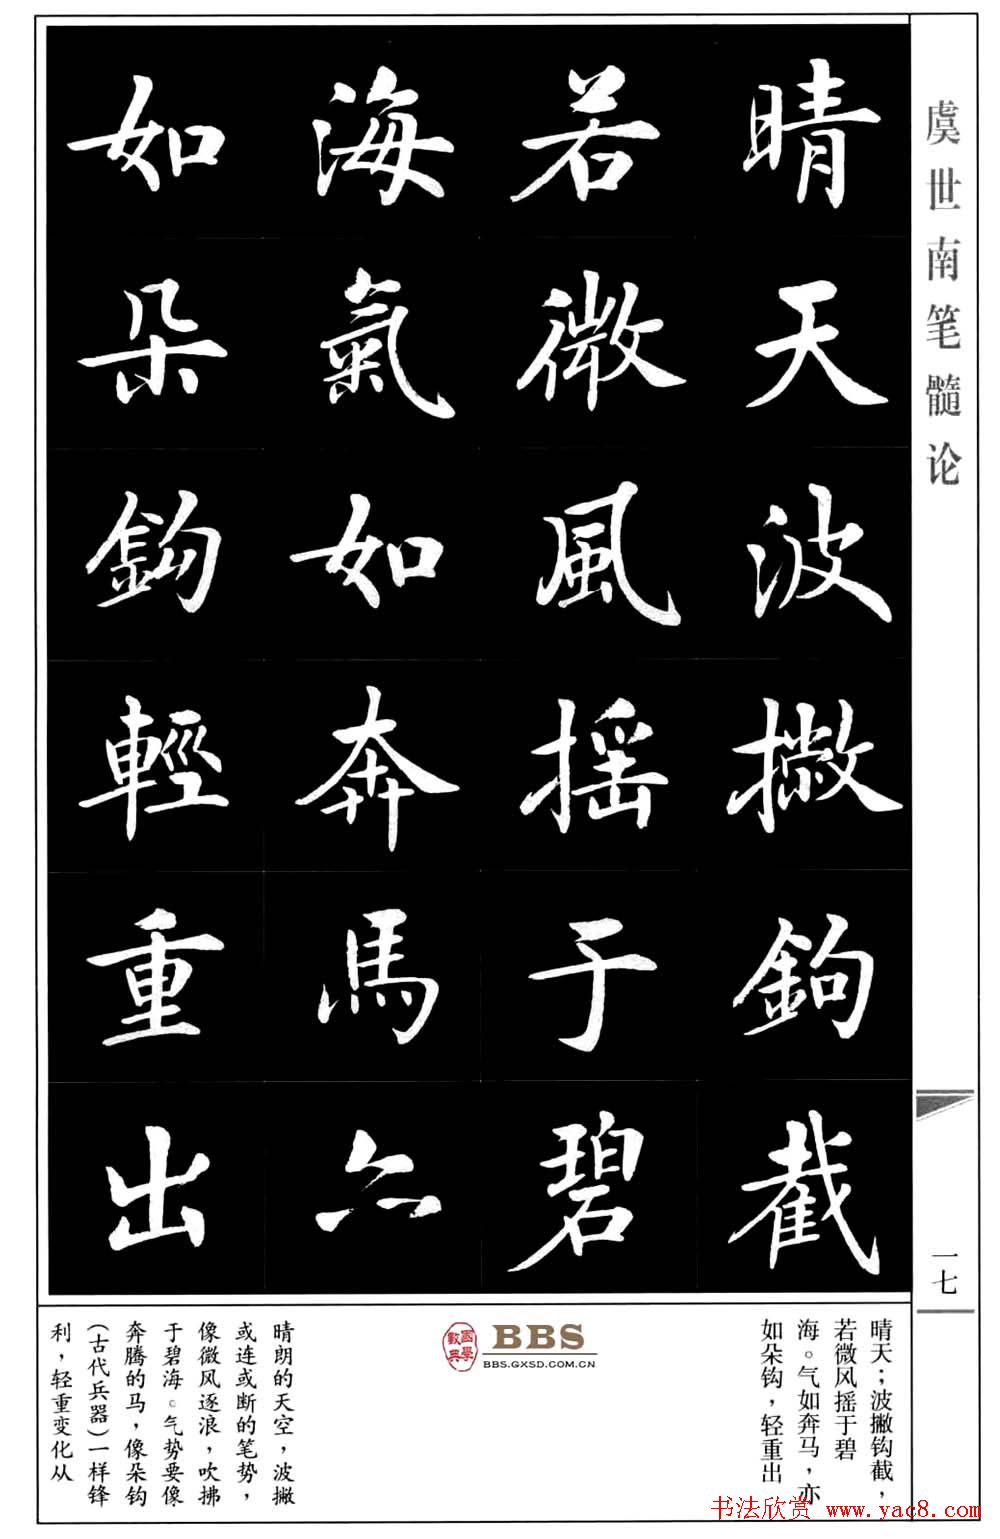 虞世南笔髓论
一七
晴天波撇鉤截
若微風摇于碧
海氣如奔馬亦
如朵鈎輕重出
晴天；波撇钩截，
若微风摇于碧
海。气如奔马，亦
如朵钩，轻重出
國學數典
BBS
BBS.GXSD.COM.CN
晴朗的天空，波撇
或连或断的笔势，
像微风逐浪，吹拂
于碧海。气势要像
奔腾的马，像朵钩
（古代兵器）一样锋
利，轻重变化从
书法欣赏 www.yac8.com